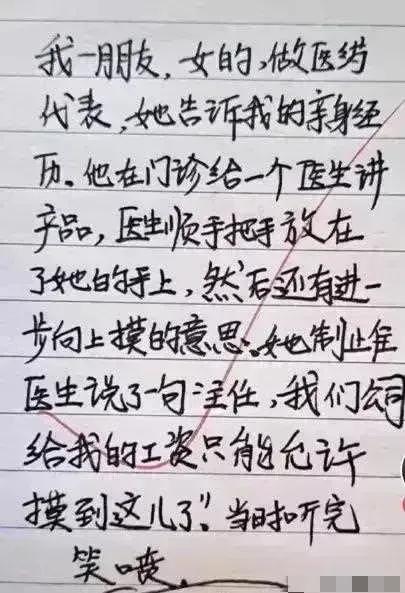 我一朋友，女的，做医药
代表，她告诉我的亲身经
历。他在门诊给一个医生讲
产品，医生顺手把手放在
了她的手上，然后还有进一
步向上摸的意思。她制止住
医生说了一句：主任，我们公司
给我的工资只能允许
摸到这儿了”。当时听完
笑喷。